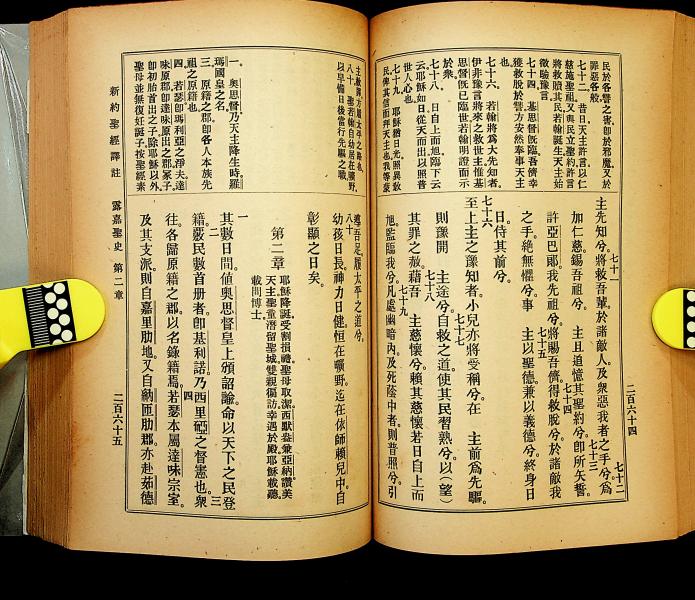 民於各讐之害卽於邪魔又於
罪惡各般
七十二 昔日天主許言以仁
慈施聖祖又與民立聖約許言
將救贖其民若翰誕生天主始
徵驗豫言
七十四 基思督旣臨吾儕幸
獲救脫於讐方安然奉事天主
也
七十六 若翰將爲大先知者
伊非豫言將來之救世主惟基
思督旣已臨世若翰明證而示
於衆
七十八 日自上而旭臨下云
云耶穌如日從天而出以照普
世人心也
七十九 耶穌猶日光照異敎
民俾其信而拜天主也我等蒙
七十一
主先知兮將救吾輩於諸敵人及衆惡我者之手兮爲
七十二
加仁慈錫吾祖兮 主且追憶其聖約兮卽所矢誓
七十三
許亞巴郎我先祖兮將賜吾儕得救脫兮於諸敵我
七十四
之手絶無懼兮事 主以聖德兼以義德兮終身日
七十五
日侍其前兮
七十六
至上主之豫知者小兒亦將受稱兮在 主前爲先驅
七十七
則豫開 主途兮自救之道使其民習熟兮以(望)
其罪之赦藉吾 主慈懷兮賴其慈懷若日自上而
七十八
旭監臨我兮凡處幽暗內及死蔭中者則普照兮引
七十九
二百六十四
主救得方履太平之路也
八十 聖若翰自幼居在曠野
以早備日後當行先驅之職
一 奥思督乃天主降生時羅
瑪國皇之名
三 原籍之郡卽各人本族先
祖之原籍也
四 若瑟卽瑪利亞之淨夫達
味原郡卽達味原出之郡冢子
卽初胎首出之子除耶穌以外
聖母並無復妊誕子按聖經素
導吾足履太平之道兮
八十
幼孩日長神力日健恒在曠野迄在依師賴兒中自
彰顯之日矣
第二章
耶穌降誕受割損禮聖母取潔西默盎兼亞納讚美
天主聖童潛留聖城雙親徧訪幸遇於殿耶穌載聽
載問博士
一
其數日間値奥思督皇上頒詔諭命以天下之民登
二
籍厥民數首册者卽基利諾乃西里亞之督憲也衆
三
往各歸原籍之郡以名錄籍焉若瑟本屬達味宗室
四
及其支派則自嘉里肋地又自納匝肋郡亦赴茹德
新約聖經譯註 露嘉聖史 第二章
二百六十五